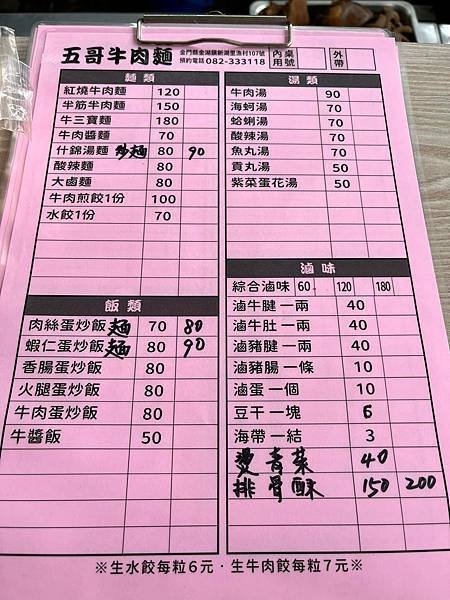 五哥牛肉麵
金門縣金湖鎮新湖里漁村107號
預約電話 082-333118
內用 桌號
外帶
麵 類
紅燒牛肉麵 120
半筋半肉麵 150
牛三寶麵 180
牛肉醬麵 70
什錦湯麵 炒麵 80 90
酸辣麵 80
大鹵麵 80
牛肉煎餃1份 100
水餃1份 70
飯 類
肉絲蛋炒飯 麵 70 80
蝦仁蛋炒飯 麵 80 90
香腸蛋炒飯 80
火腿蛋炒飯 80
牛肉蛋炒飯 80
牛醬飯 50
湯 類
牛肉湯 90
海蚵湯 70
蛤蜊湯 70
酸辣湯 70
魚丸湯 70
貢丸湯 50
紫菜蛋花湯 50
滷 味
綜合滷味 60 120 180
滷牛腱 一兩 40
滷牛肚 一兩 40
滷豬腱 一兩 40
滷豬腸 一條 10
滷蛋 一個 10
豆干 一塊 6
海帶 一結 3
燙青菜 40
排骨酥 150 200
※生水餃每粒6元．生牛肉餃每粒7元※